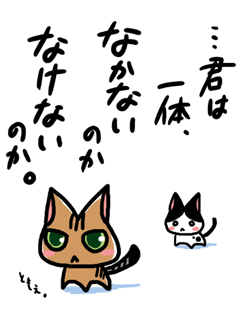 …君は
一体、
なかない
のか
なけない
のか。
ともえ。